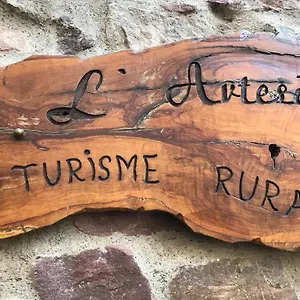 L'Artesa
TURISME RURAL